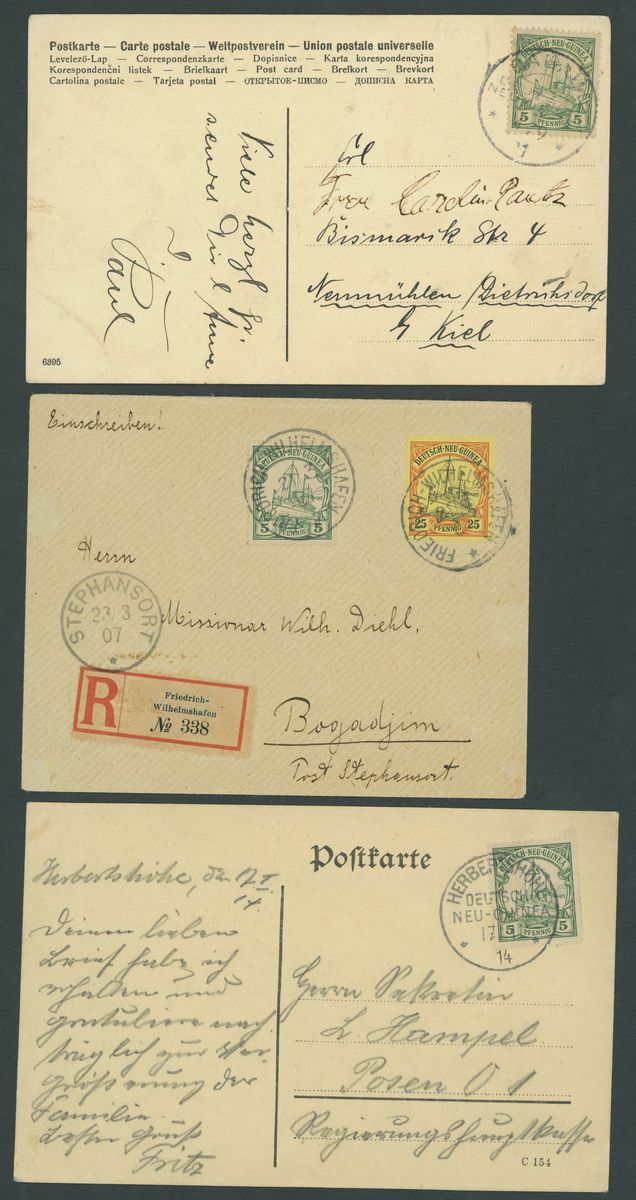 Postkarte — Carte postale — Weltpostverein — Union postale universelle
Levelező-Lap — Correspondenzkarte — Dopisnice — Karta korespondencyjna
Korespondenční listek — Briefkaart — Post card — Brefkort — Brevkort
Cartolina postale — Tarjeta postal — ОТКРЫТОЕ-ПИСМО — ДОПИСНА КАРТА
DEUTSCH-NEU-GUINEA
5 PFENNIG 5
Viele herzl Gr.
sendet
Paul
Frl
Bismark Str 4
Neumühlen/Dietrichsdorf
Kiel
6395
Einschreiben!
DEUTSCH-NEU-GUINEA
5 PFENNIG 5
FRIEDRICH-WILHELMSHAFEN
DEUTSCH-NEU-GUINEA
25 PFENNIG 25
FRIEDRICH-WILHELMSHAFEN
Herrn
STEPHANSORT
23/3
07
Missionar Wilh. Diehl,
R
Friedrich-
Wilhelmshafen
№ 338
Bogadjim
Post Stephansort.
Postkarte
HERBERTSHÖHE
DEUTSCH-
NEU-GUINEA
17
14
DEUTSCH-NEU-GUINEA
5 PFENNIG 5
Herbertshöhe, den 17.I
14.
Deinen lieben
Brief habe ich
erhalten und
gratuliere nach
träglich zur Ver
größerung der
Familie.
Besten Gruß
Fritz
Herrn Sekretär
L. Hampel
Posen O 1
Regierungshauptkasse
C 154